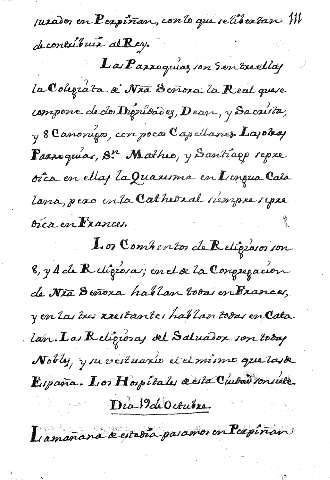 surados en Perpiñan, con lo que se libertan
111
de contribuir al Rey.
Las Parroquias son 5 entre ellas
la Colegiata de Nrã Señora la Real que se
compone de dos Dignidades, Dean, y Sacrista,
y 8 Canonigos, con poca Capellanes. Las otras
Parroquias, Sn. Matheo, y Santiago se pre
dica en ellas la Quaresma en Lengua Cata
lana, pero en la Cathedral siempre se pre
dica en Frances.
Los Combentos de Religiosos son
8, y 4 de Religiosas; en el de la Congregacion
de Nrã Señora hablan todas en Frances,
y en las tres restantes hablan todas en Cata
lan. Las Religiosas del Salvador son todas
Nobles, y su vestuario el el mismo que las de
España. Los Hospitales de esta Ciudad son siete.
Dia 19 de Octubre.
La mañana de este dia pasamos en Perpiñan